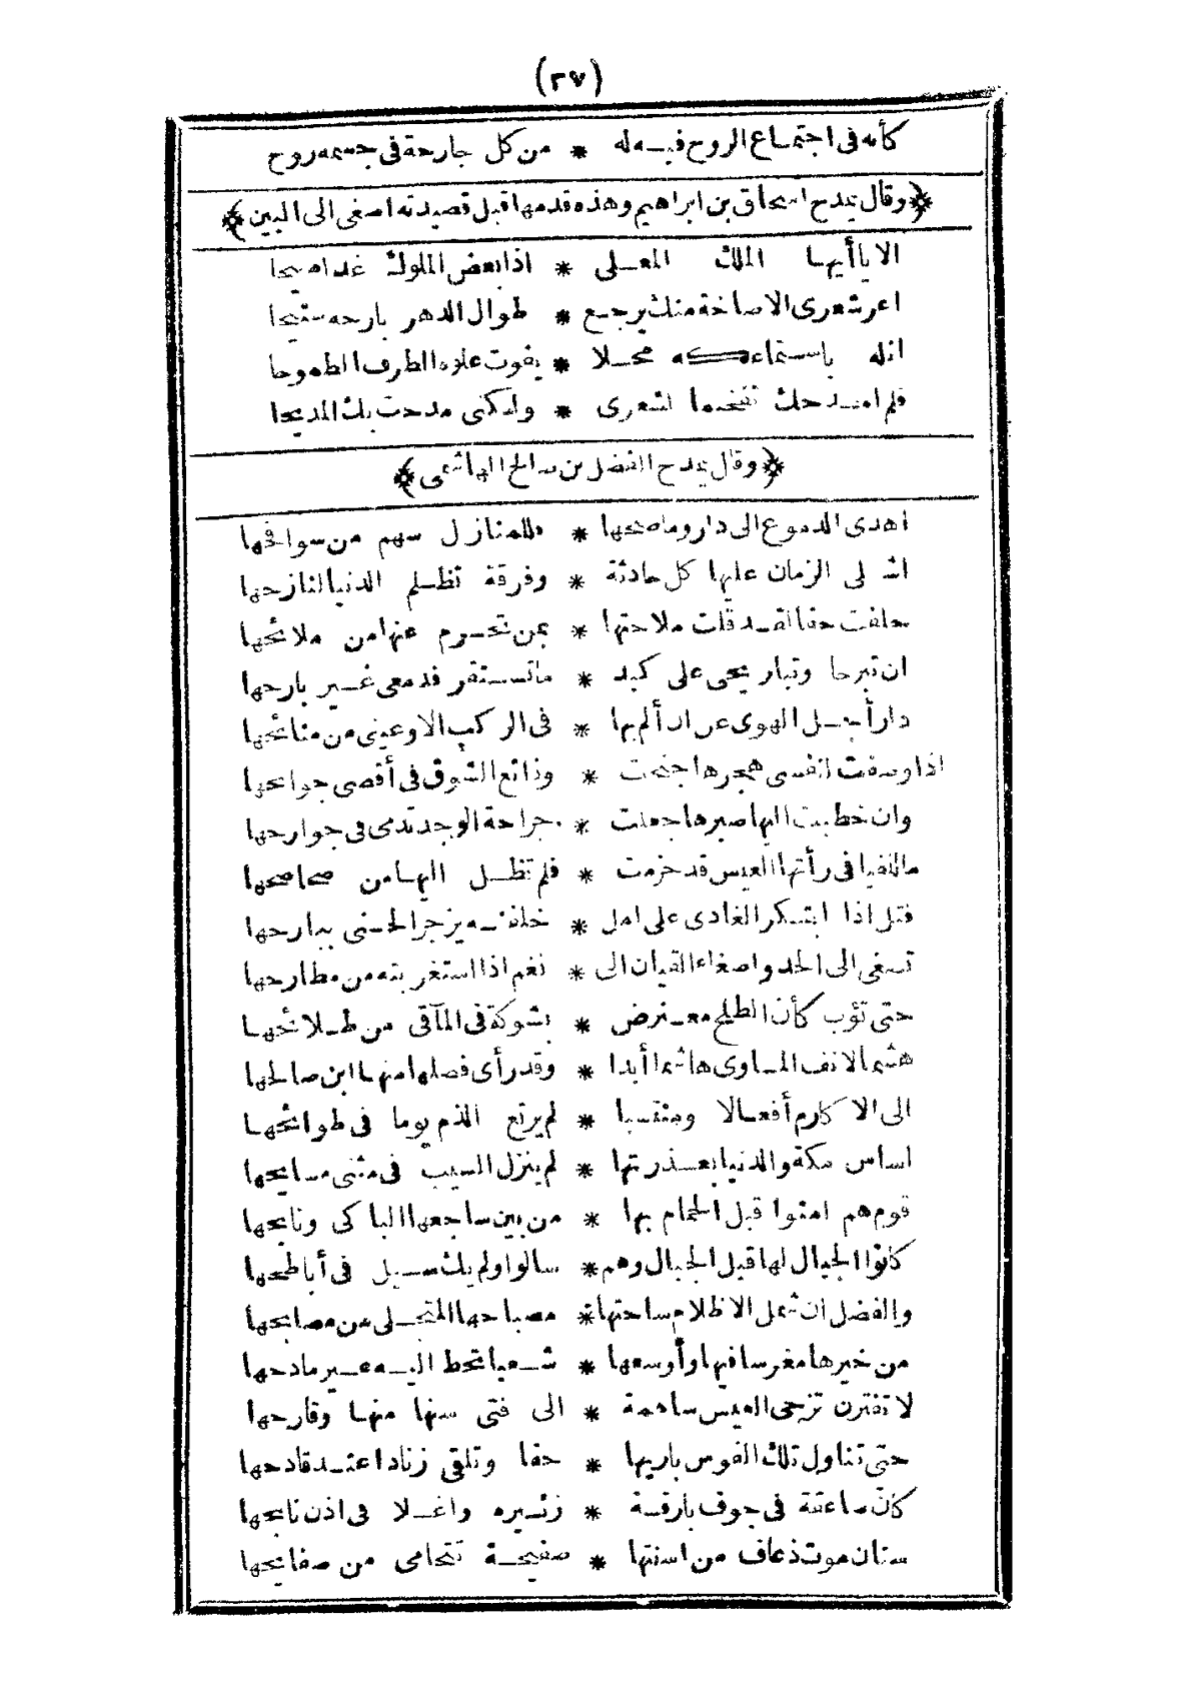 (٢٧)
كأنه فى اجتماع الروح فيه له * من كل جارحة فى جسمه روح
﴿وقال يمدح اسحاق بن ابراهيم وهذه قدمها قبل قصيدته اصغى الى البين﴾
الا ياأيها الملك المعلى * اذا بعض الملوك غدا منيحا
اعر شعرى الاصاخة منك يرجع * طوال الدهر بارحه سنيحا
انله باستماعكه محلا * يفوت علاوه الطرف الطموحا
فلم امدحك تفخيما لشعرى * ولكنى مدحت بك المديحا
﴿وقال يمدح الفضل بن صالح الهاشمى﴾
اهدى الدموع الى دار وماصحها * فللمنازل سهم من سوافحها
اشلى الزمان عليها كل حادثة * وفرقة تظلم الدنيا لنازحها
حلفت حقا لقد قلت ملاحتها * بمن تخرم عنها من ملائحها
ان تبرحا وتباريحى على كبد * ماتستقر فدمعى غير بارحها
دار أجل الهوى عن ان ألم بها * فى الركب الا وعينى من منائحها
اذا وصفت لنفسى هجرها جنحت * ودائع الشوق فى أقصى جوانحها
وان خطبت اليها صبرها جعلت * جراحة الوجد تدمى فى جوارحها
ماللفيافى رأتها العيس قد خزمت * فلم تظل اليها من صحاصحها
فتل اذا ابتكر الغادى على امل * خلفنه يزجر الحسرى برارحها
تصغى الى الحدو اصغاء القيان الى * نغم اذا استغربته من مطارحها
حتى تؤب كأن الطلح معترض * بشوكة فى المآقى من طلائحها
هشما لانف المساوى هاشما أبدا * وقد رأى فضلها منها ابن صالحها
الى الاكارم أفعالا ومنتسبا * لم يرتع الذم يوما فى طوائحها
اساس مكة والدنيا بعذرتها * لم ينزل الشيب فى مثنى مسايحها
قوم هم امنوا قبل الحمام بها * من بين ساجعها الباكى ونائحها
كانوا الجبال لها قبل الجبال وهم * سالوا ولم يك سيل فى أباطحها
والفضل ان شمل الاظلام ساحتها * مصباحها المتجلى من مصابحها
من خيرها مغرسا فيها وأوسعها * شعبا تحط اليه عير مادحها
لا تفترن تزجى العيس ساهمة * الى فتى سنها منها وقارحها
حتى تناول تلك القوس باريها * حقا وتلقى زنادا عند قادحها
كأن صاعقة فى جوف بارقة * زئيره واغلا فى اذن نابحها
سنان موت ذعاف من اسنتها * صفيحة تتحامى من صفائحها